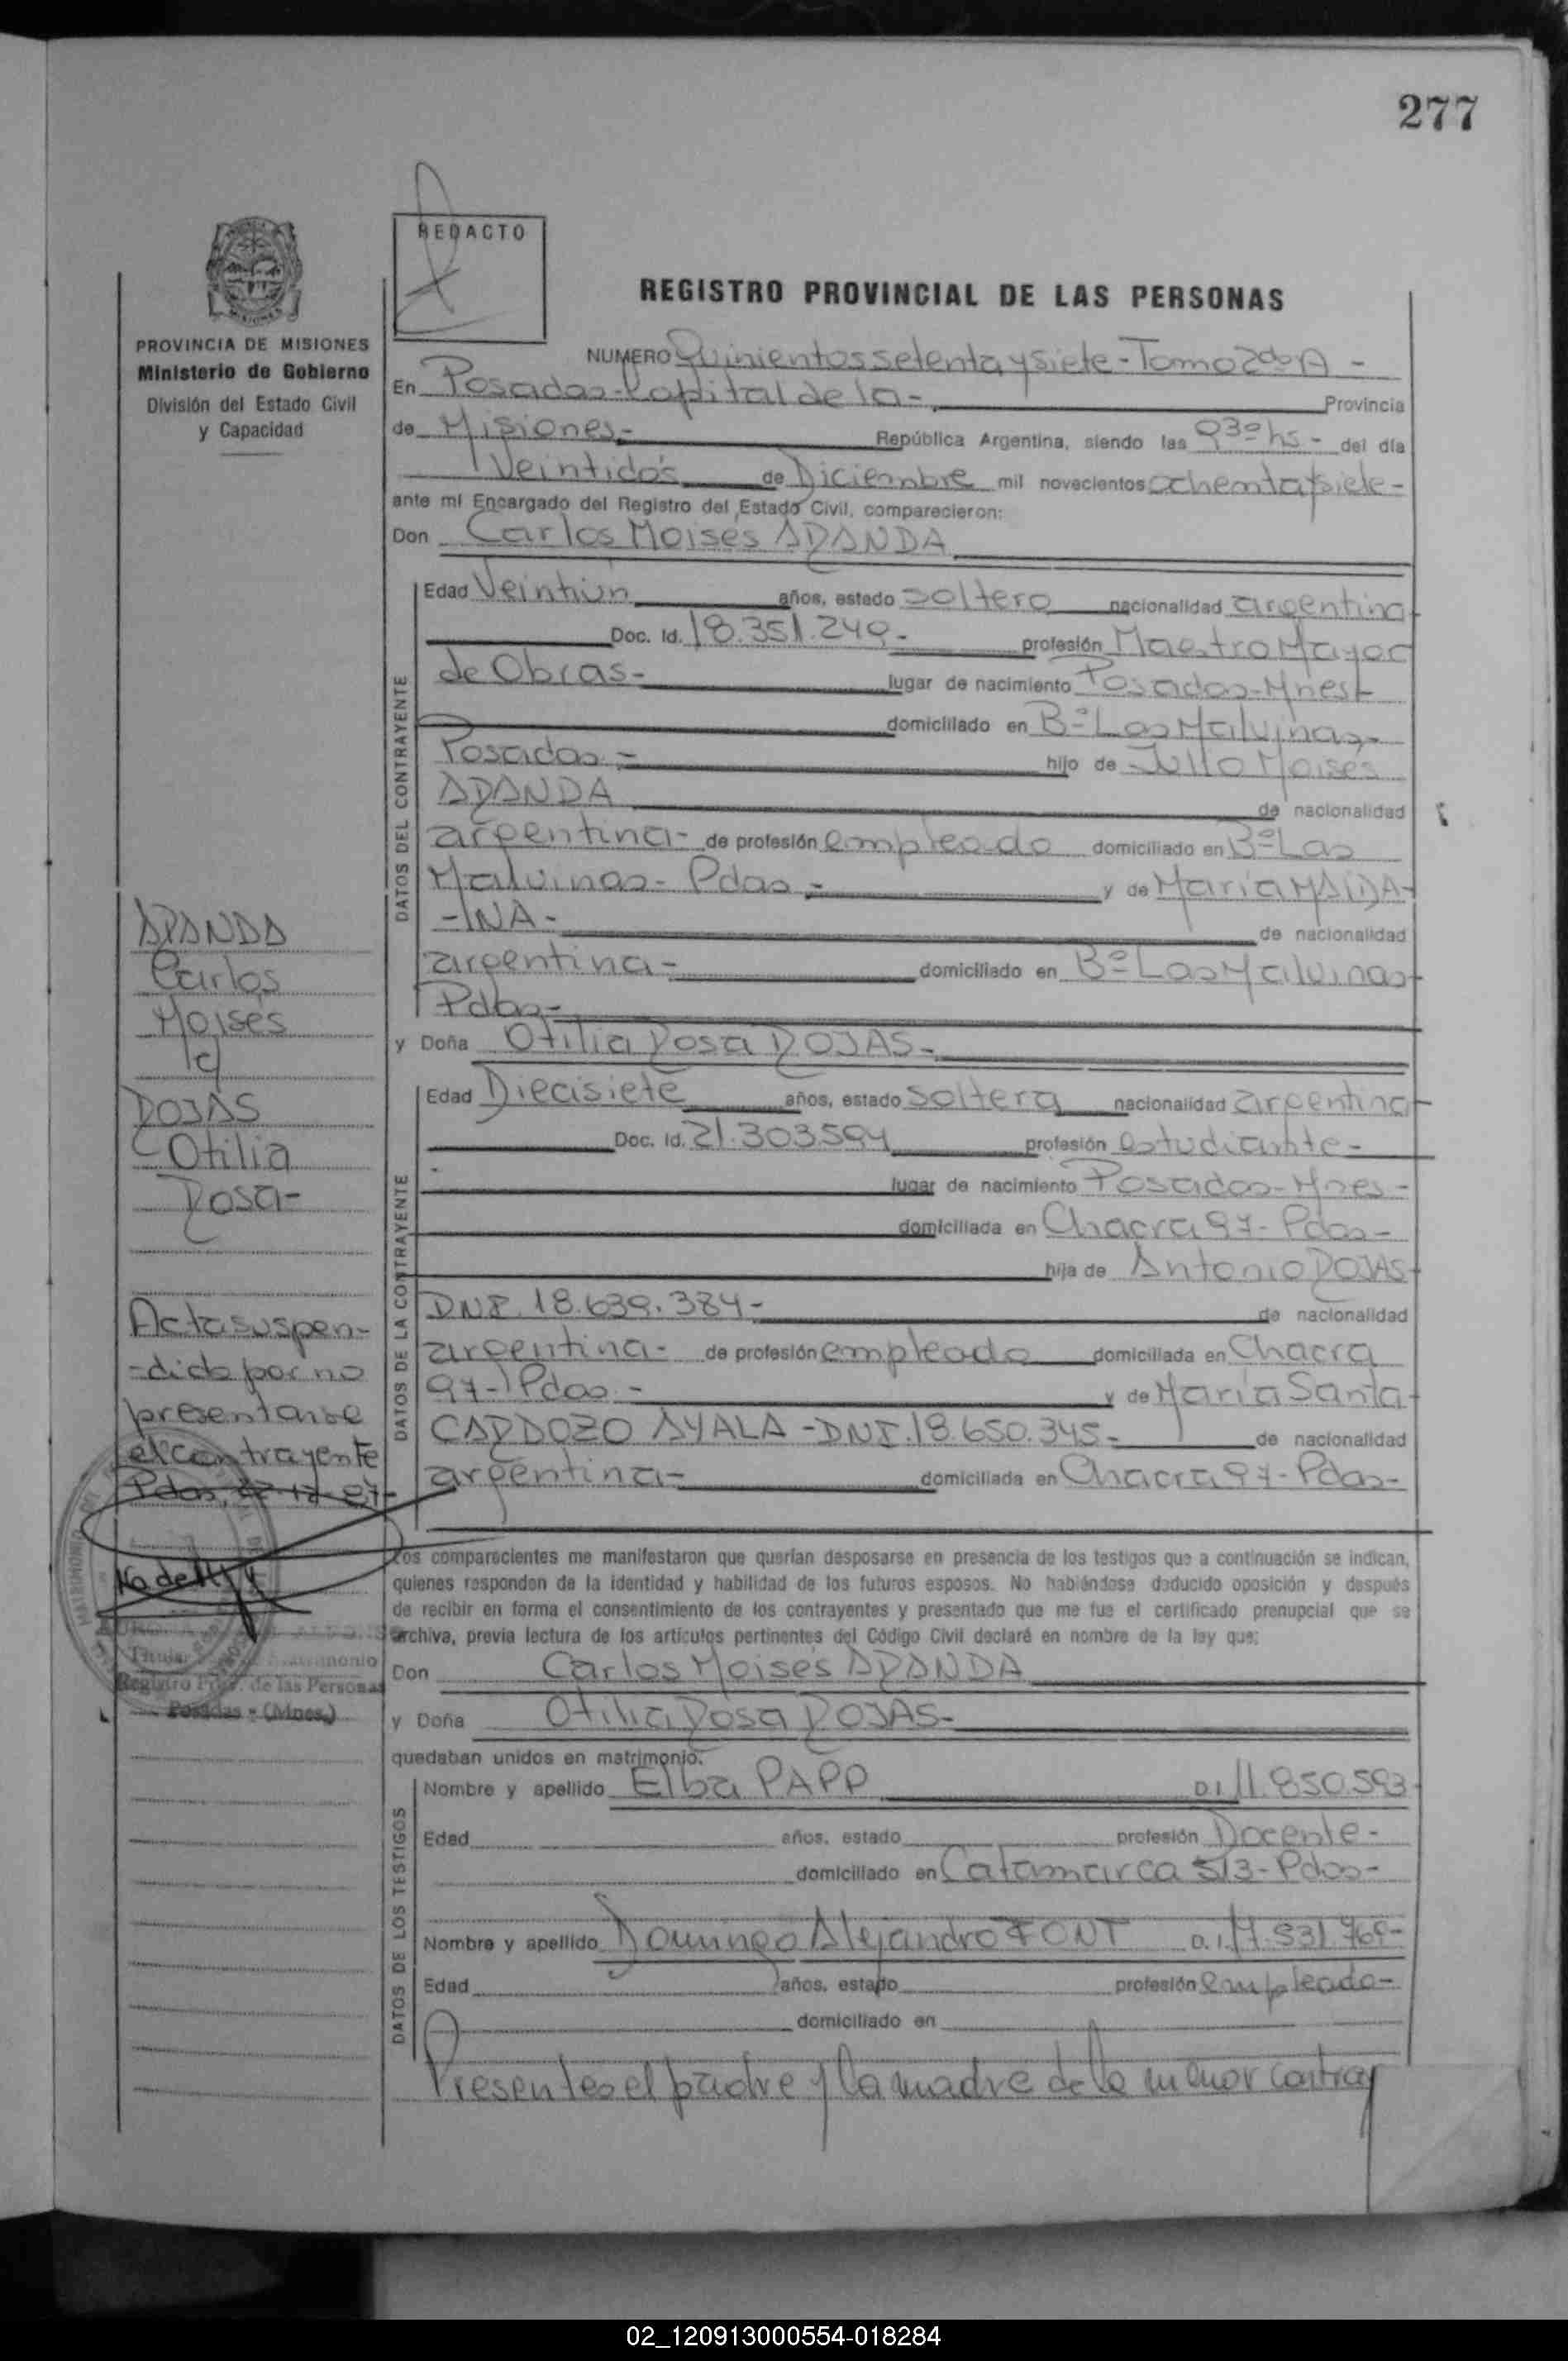 277
REDACTO
REGISTRO PROVINCIAL DE LAS PERSONAS
PROVINCIA DE MISIONES
Ministerio de Gobierno
División del Estado Civil
y Capacidad
NUMERO Quinientos setenta y siete - Tomo 2do A -
En Posadas - Capital de la - Provincia
de Misiones - República Argentina, siendo las 9 30 hs - del día
Veintidós de Diciembre mil novecientos ochenta y siete -
ante mí Encargado del Registro del Estado Civil, comparecieron:
Don Carlos Moises ARANDA
DATOS DEL CONTRAYENTE
Edad Veintiún años, estado soltero nacionalidad argentina
Doc. Id. 18.351.249 - profesión Maestro Mayor
de Obras - lugar de nacimiento Posadas - Mnes -
domiciliado en Bº Las Malvinas -
Posadas - hijo de Julio Moises
ARANDA de nacionalidad
argentina - de profesión empleado domiciliado en Bº Las
Malvinas - Pdas - y de Maria MAIDA-
-INA - de nacionalidad
argentina - domiciliado en Bº Las Malvinas
Pdas -
y Doña Otilia Rosa ROJAS -
DATOS DE LA CONTRAYENTE
Edad Diecisiete años, estado soltera nacionalidad argentina
Doc. Id. 21.303.594 profesión estudiante -
lugar de nacimiento Posadas - Mnes -
domiciliada en Chacra 97 - Pdas -
hija de Antonio ROJAS
DNI. 18.639.384 - de nacionalidad
argentina - de profesión empleado domiciliada en Chacra
97 - Pdas - y de Maria Santa
CARDOZO AYALA - DNI. 18.650.345 - de nacionalidad
argentina - domiciliada en Chacra 97 - Pdas -
ARANDA
Carlos
Moises
c/
ROJAS
Otilia
Rosa -
Acta suspen-
-dida por no
presentarse
el contrayente
Pdas, 22-12-87-
Titular Matrimonio
Registro Prov. de las Personas
Posadas - (Mnes.)
Los comparecientes me manifestaron que querían desposarse en presencia de los testigos que a continuación se indican,
quienes responden de la identidad y habilidad de los futuros esposos. No habiéndose deducido oposición y después
de recibir en forma el consentimiento de los contrayentes y presentado que me fue el certificado prenupcial que se
archiva, previa lectura de los artículos pertinentes del Código Civil declaré en nombre de la ley que:
Don Carlos Moises ARANDA
y Doña Otilia Rosa ROJAS -
quedaban unidos en matrimonio.
DATOS DE LOS TESTIGOS
Nombre y apellido Elba PAPP D.I. 11.850.593
Edad años, estado profesión Docente -
domiciliado en Catamarca 513 - Pdas -
Nombre y apellido Domingo Alejandro FONT D.I. 7.931.769 -
Edad años, estado profesión empleado -
domiciliado en
Presentes el padre y la madre de la menor contray
02_120913000554-018284